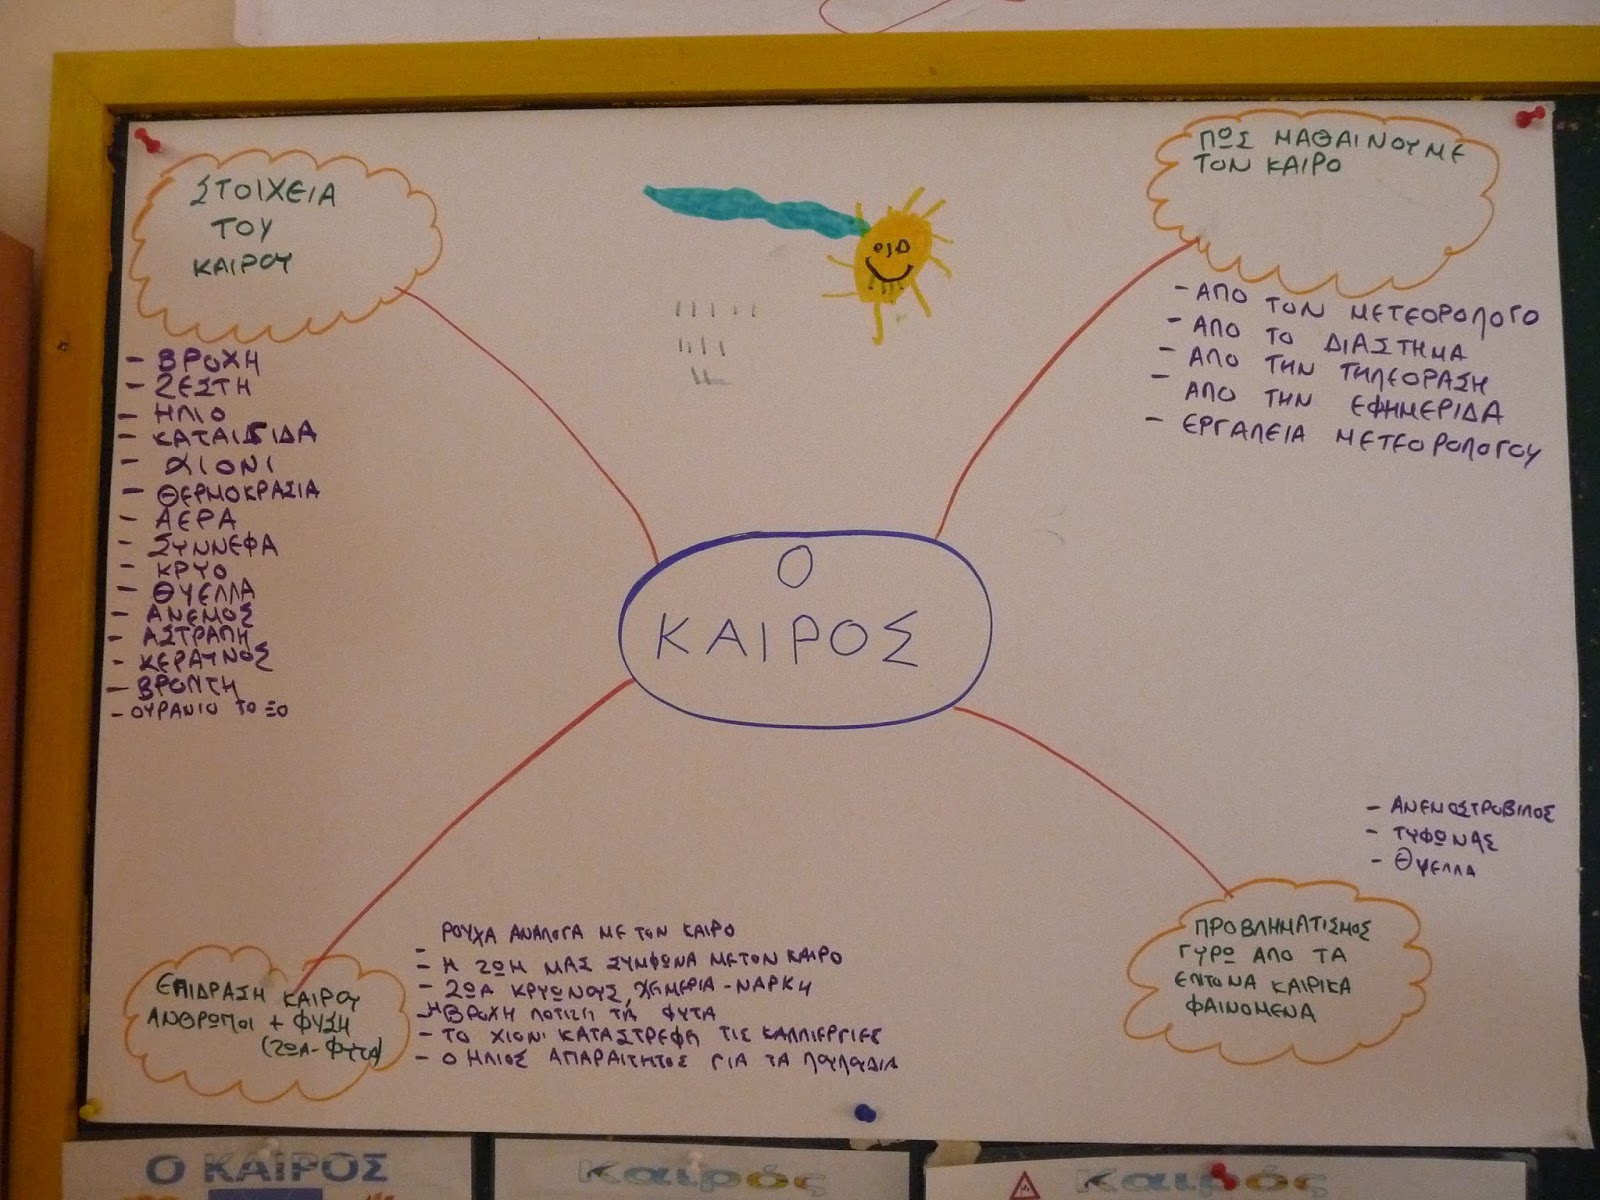 ΣΤΟΙΧΕΙΑ
ΤΟΥ
ΚΑΙΡΟΥ
- ΒΡΟΧΗ
- ΖΕΣΤΗ
- ΗΛΙΟ
- ΚΑΤΑΙΓΙΔΑ
- ΧΙΟΝΙ
- ΘΕΡΜΟΚΡΑΣΙΑ
- ΑΕΡΑ
- ΣΥΝΝΕΦΑ
- ΚΡΥΟ
- ΘΥΕΛΛΑ
- ΑΝΕΜΟΣ
- ΑΣΤΡΑΠΗ
- ΚΕΡΑΥΝΟΣ
- ΒΡΟΝΤΗ
- ΟΥΡΑΝΙΟ ΤΟΞΟ
ΠΩΣ ΜΑΘΑΙΝΟΥΜΕ
ΤΟΝ ΚΑΙΡΟ
- ΑΠΟ ΤΟΝ ΜΕΤΕΟΡΟΛΟΓΟ
- ΑΠΟ ΤΟ ΔΙΑΣΤΗΜΑ
- ΑΠΟ ΤΗΝ ΤΗΛΕΟΡΑΣΗ
- ΑΠΟ ΤΗΝ ΕΦΗΜΕΡΙΔΑ
- ΕΡΓΑΛΕΙΑ ΜΕΤΕΟΡΟΛΟΓΟΥ
Ο
ΚΑΙΡΟΣ
ΕΠΙΔΡΑΣΗ ΚΑΙΡΟΥ
ΑΝΘΡΩΠΟΙ + ΦΥΣΗ
(ΖΩΑ-ΦΥΤΑ)
ΡΟΥΧΑ ΑΝΑΛΟΓΑ ΜΕ ΤΟΝ ΚΑΙΡΟ
- Η ΖΩΗ ΜΑΣ ΣΥΜΦΩΝΑ ΜΕ ΤΟΝ ΚΑΙΡΟ
- ΖΩΑ ΚΡΥΩΝΟΥΣ, ΧΕΙΜΕΡΙΑ - ΝΑΡΚΗ
- Η ΒΡΟΧΗ ΠΟΤΙΖΗ ΤΑ ΦΥΤΑ
- ΤΟ ΧΙΟΝΙ ΚΑΤΑΣΤΡΕΦΗ ΤΙΣ ΚΑΛΛΙΕΡΓΙΕΣ
- Ο ΗΛΙΟΣ ΑΠΑΡΑΙΤΗΤΟΣ ΓΙΑ ΤΑ ΛΟΥΛΟΥΔΙΑ
- ΑΝΕΜΟΣΤΡΟΒΙΛΟΣ
- ΤΥΦΩΝΑΣ
- ΘΥΕΛΛΑ
ΠΡΟΒΛΗΜΑΤΙΣΜΟΣ
ΓΥΡΩ ΑΠΟ ΤΑ
ΕΝΤΟΝΑ ΚΑΙΡΙΚΑ
ΦΑΙΝΟΜΕΝΑ
Ο ΚΑΙΡΟΣ
Καιρός
Καιρός